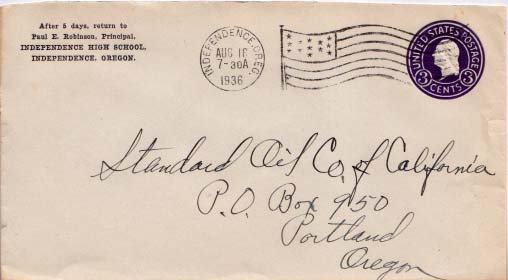 After 5 days, return to
Paul E. Robinson, Principal,
INDEPENDENCE HIGH SCHOOL,
INDEPENDENCE. OREGON.
INDEPENDENCE. OREG.
AUG 18
7-30A
1936
UNITED STATES POSTAGE
3 CENTS 3
Standard Oil Co. of California
P.O. Box 950
Portland
Oregon